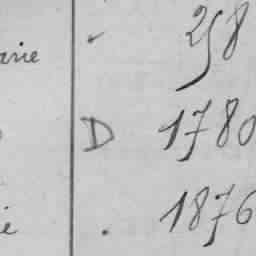 arie - 258
D 1780
ie . 1876